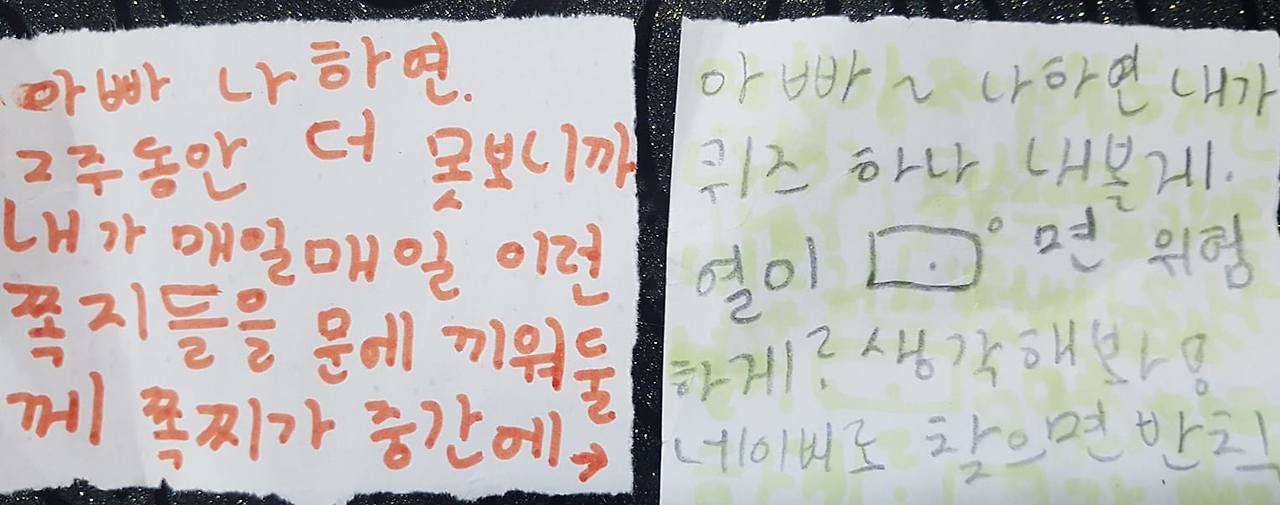 아빠 나 하연.
2주동안 더 못보니까
내가 매일매일 이런
쪽지들을 문에 끼워둘
께 쪽찌가 중간에→
아빠~ 나하연 내가
퀴즈 하나 내볼게.
열이 □.° 면 위험
하게? 생각해봐용
네이버로 찾으면 반칙